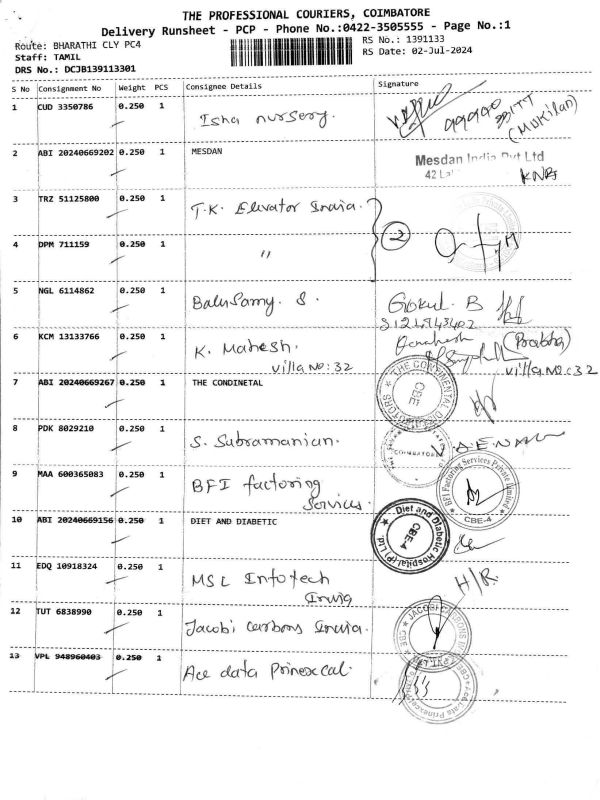 THE PROFESSIONAL COURIERS, COIMBATORE
Delivery Runsheet - PCP - Phone No.:0422-3505555 - Page No.:1
Route: BHARATHI CLY PC4
Staff: TAMIL
DRS No.: DCJB139113301
RS No.: 1391133
RS Date: 02-Jul-2024
S No Consignment No Weight PCS Consignee Details Signature
1 CUD 3350786 0.250 1 Isha nursery.
(Mukilan)
2 ABI 20240669202 0.250 1 MESDAN Mesdan India Pvt Ltd
42
3 TRZ 51125800 0.250 1 T.K. Elevator India.
2
4 DPM 711159 0.250 1 "
5 NGL 6114862 0.250 1 BaluSamy. S. Gokul. B
6 KCM 13133766 0.250 1 K. Mahesh. (Prabha)
Villa No: 32 Villa No: 32
7 ABI 20240669267 0.250 1 THE CONDINETAL
CBE
8 PDK 8029210 0.250 1 S. Subramanian. COIMBATORE
9 MAA 600365083 0.250 1 BFI factoring
Services. BFI Factoring Services Private Limited
CBE-4
10 ABI 20240669156 0.250 1 DIET AND DIABETIC Diet and Diabetic Hospital (P) Ltd.
CBE-4
11 EDQ 10918324 0.250 1 MSL Infotech H/R
India
12 TUT 6838990 0.250 1 Jacobi carbons India.
13 VPL 948960403 0.250 1 Ace data Prinexcal.